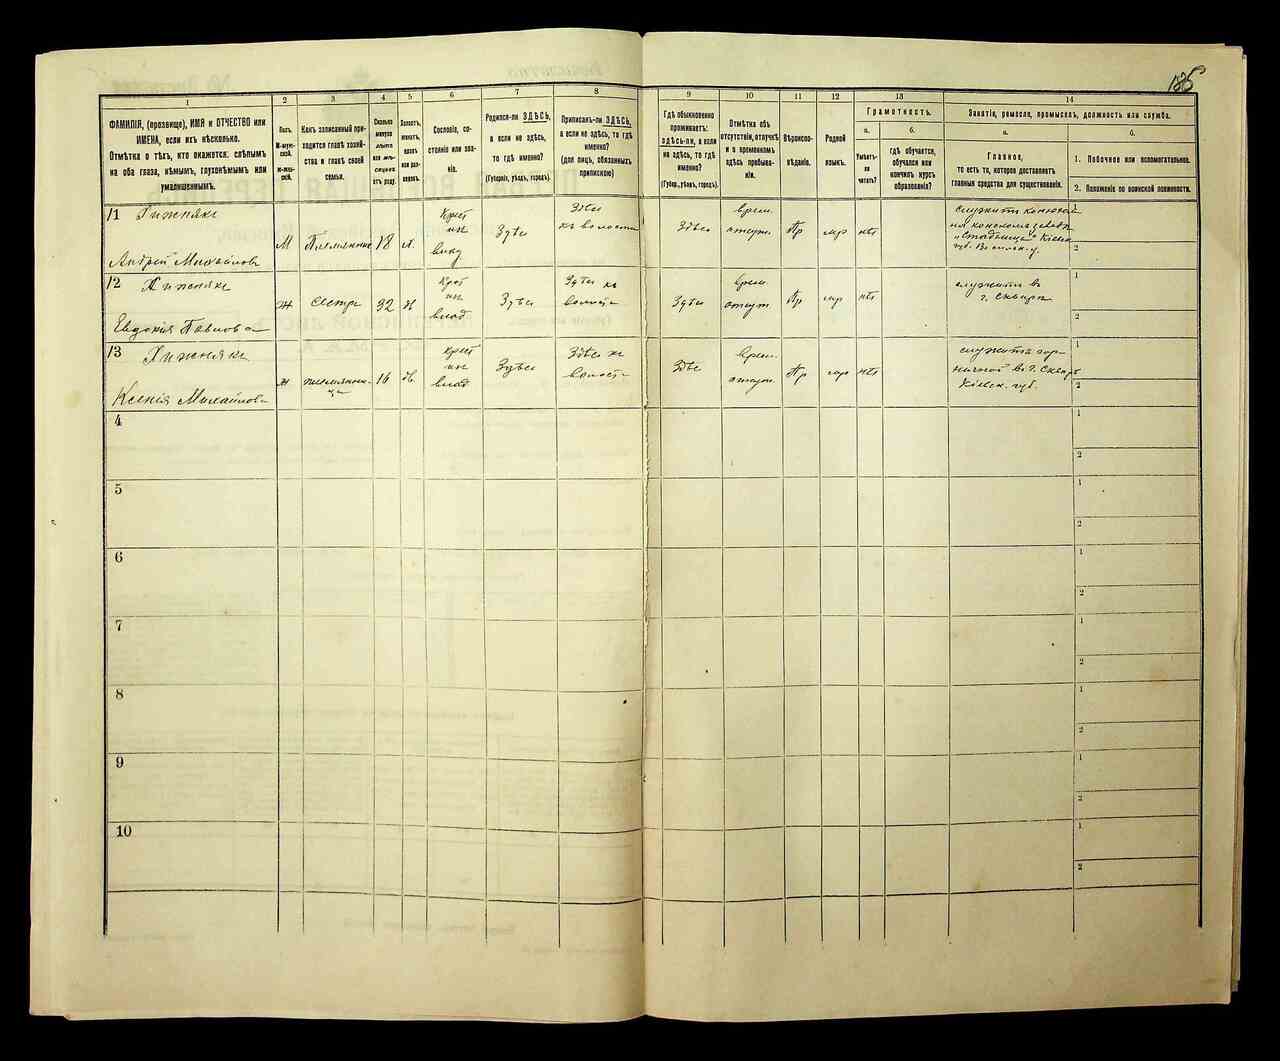 186
1
2
3
4
5
6
7
8
9
10
11
12
13
14
ФАМИЛІЯ, (прозвище), ИМЯ и ОТЧЕСТВО или
ИМЕНА, если ихъ нѣсколько.
Отмѣтка о тѣхъ, кто окажется: слѣпымъ
на оба глаза, нѣмымъ, глухонѣмымъ или
умалишеннымъ.
Полъ.
М-муж-
ской.
Ж-жен-
скій.
Какъ записанный при-
ходится главѣ хозяй-
ства и главѣ своей
семьи.
Сколько
минуло
лѣтъ
или мѣ-
сяцевъ
отъ роду.
Холостъ,
женатъ,
вдовъ
или раз-
веденъ.
Сословіе, со-
стояніе или зва-
ніе.
Родился-ли ЗДѢСЬ,
а если не здѣсь,
то гдѣ именно?
(Губернія, уѣздъ, городъ).
Приписанъ-ли ЗДѢСЬ,
а если не здѣсь, то гдѣ
именно?
(для лицъ, обязанныхъ
припискою)
Гдѣ обыкновенно
проживаетъ:
здѣсь-ли, а если
не здѣсь, то гдѣ
именно?
(Губерн.,уѣздъ, городъ).
Отмѣтка объ
отсутствіи, отлучкѣ
и о временномъ
здѣсь пребыва-
ніи.
Вѣроиспо-
вѣданіе.
Родной
языкъ.
Грамотность.
а.
б.
Умѣетъ-
ли
читать?
гдѣ обучается,
обучался или
кончилъ курсъ
образованія?
Занятіе, ремесло, промыселъ, должность или служба.
а.
б.
Главное,
то есть то, которое доставляетъ
главныя средства для существованія.
1. Побочное или вспомогательное.
2. Положеніе по воинской повинности.
1 Хижнякъ
Андрей Михайловъ
М Племянникъ 18 х.
Крест
ин
влад
Здѣсь
Здѣсь
къ волости
Здѣсь
врем.
отсут.
Пр
мр
нѣтъ
служитъ конюхомъ
на конскомъ заводѣ
Кіевск.
губ. Васильк. у.
1
2
2 Хижнякъ
Евдокія Павлова
ж Сестра 32
Крест
ин
влад
Здѣсь
Здѣсь къ
волости
Здѣсь
врем.
отсут.
Пр
мр
нѣтъ
служитъ въ
г. Сквирѣ
1
2
3 Хижнякъ
Ксенія Михайлова
ж племянни-
ца 16 дв.
крест
ин
влад
Здѣсь
Здѣсь къ
волости
Здѣсь
врем.
отсут.
Пр
мр
нѣтъ
служитъ гор-
ничной въ г. Сквирѣ
Кіевск. губ.
1
2
4
1
2
5
1
2
6
1
2
7
1
2
8
1
2
9
1
2
10
1
2